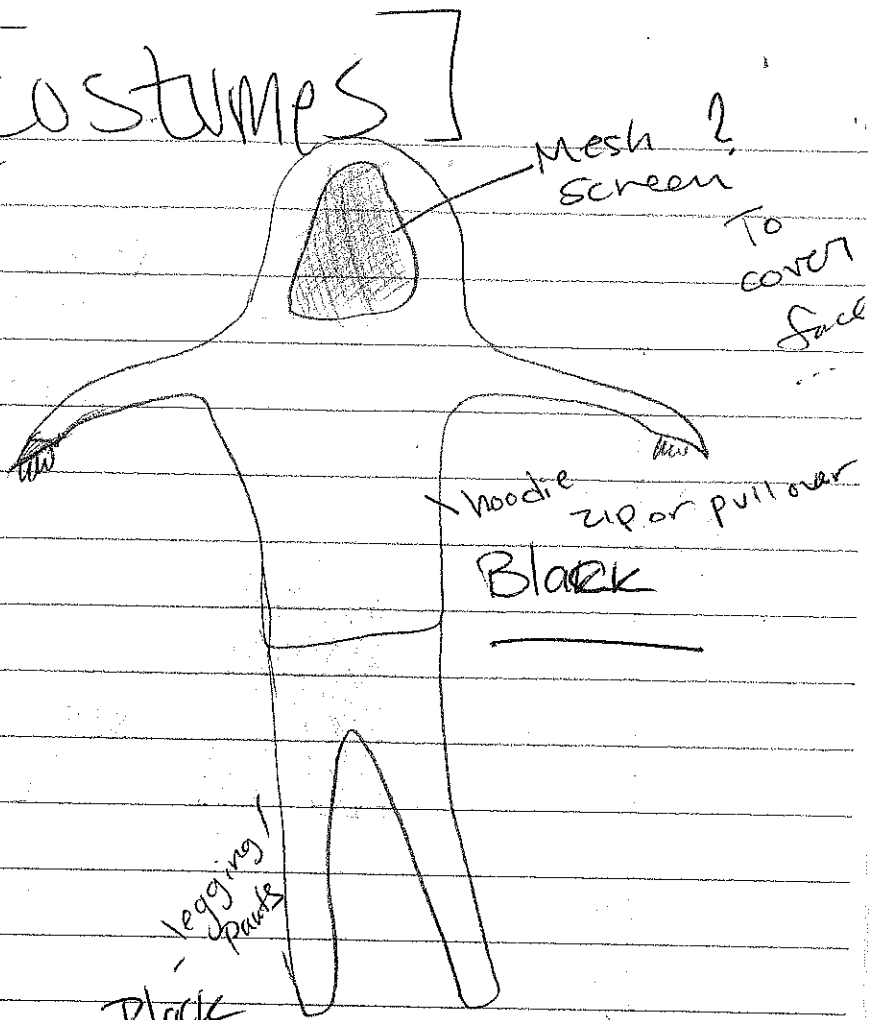 Costumes]
Mesh ?
screen
To
cover
face
...
hoodie
zip or pull over
Black
- legging/
pants
Black